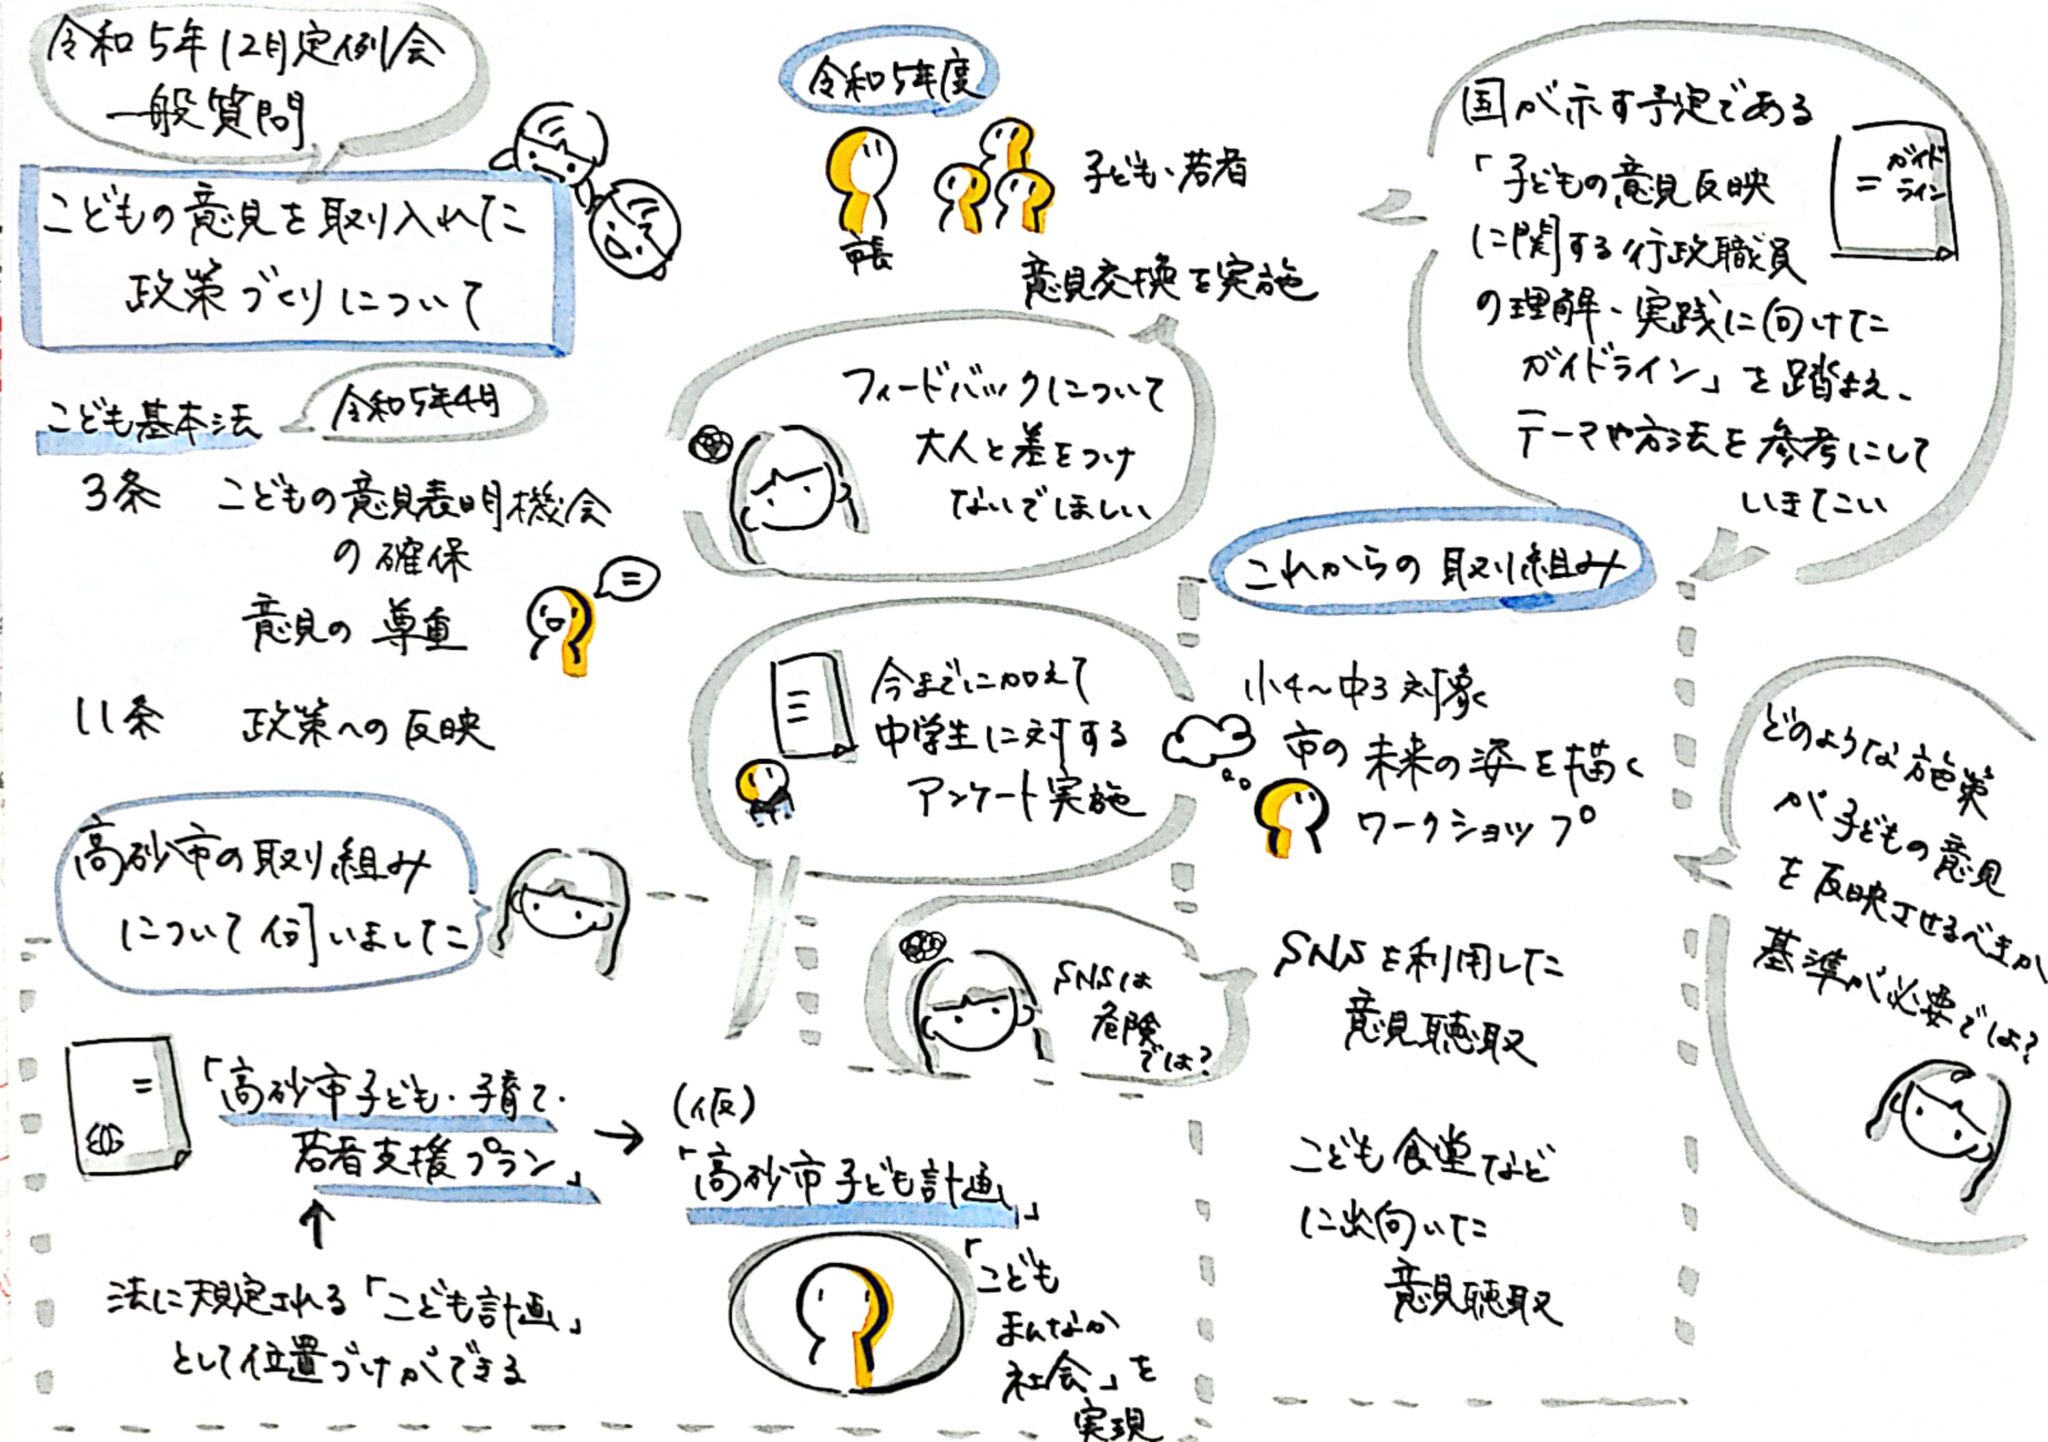 令和5年12月定例会
一般質問
こどもの意見を取り入れた
政策づくりについて
こども基本法
令和5年4月
3条 こどもの意見表明機会
の確保
意見の尊重
11条 政策への反映
高砂市の取り組み
について伺いました
「高砂市子ども・子育て・
若者支援プラン」
↑
法に規定される「こども計画」
として位置づけができる
→
(仮)
「高砂市子ども計画」
「こども
まんなか
社会」を
実現
令和5年度
市長
子ども・若者
意見交換を実施
フィードバックについて
大人と差をつけ
ないでほしい
今までに加えて
中学生に対する
アンケート実施
これからの取り組み
小4〜中3対象
市の未来の姿を描く
ワークショップ
SNSを利用した
意見聴取
SNSは
危険
では?
こども食堂など
に出向いた
意見聴取
国が示す予定である
「子どもの意見反映
に関する行政職員
の理解・実践に向けた
ガイドライン」を踏まえ、
テーマや方法を参考にして
いきたい
ガイド
ライン
どのような施策
が子どもの意見
を反映させるべきか
基準が必要では?